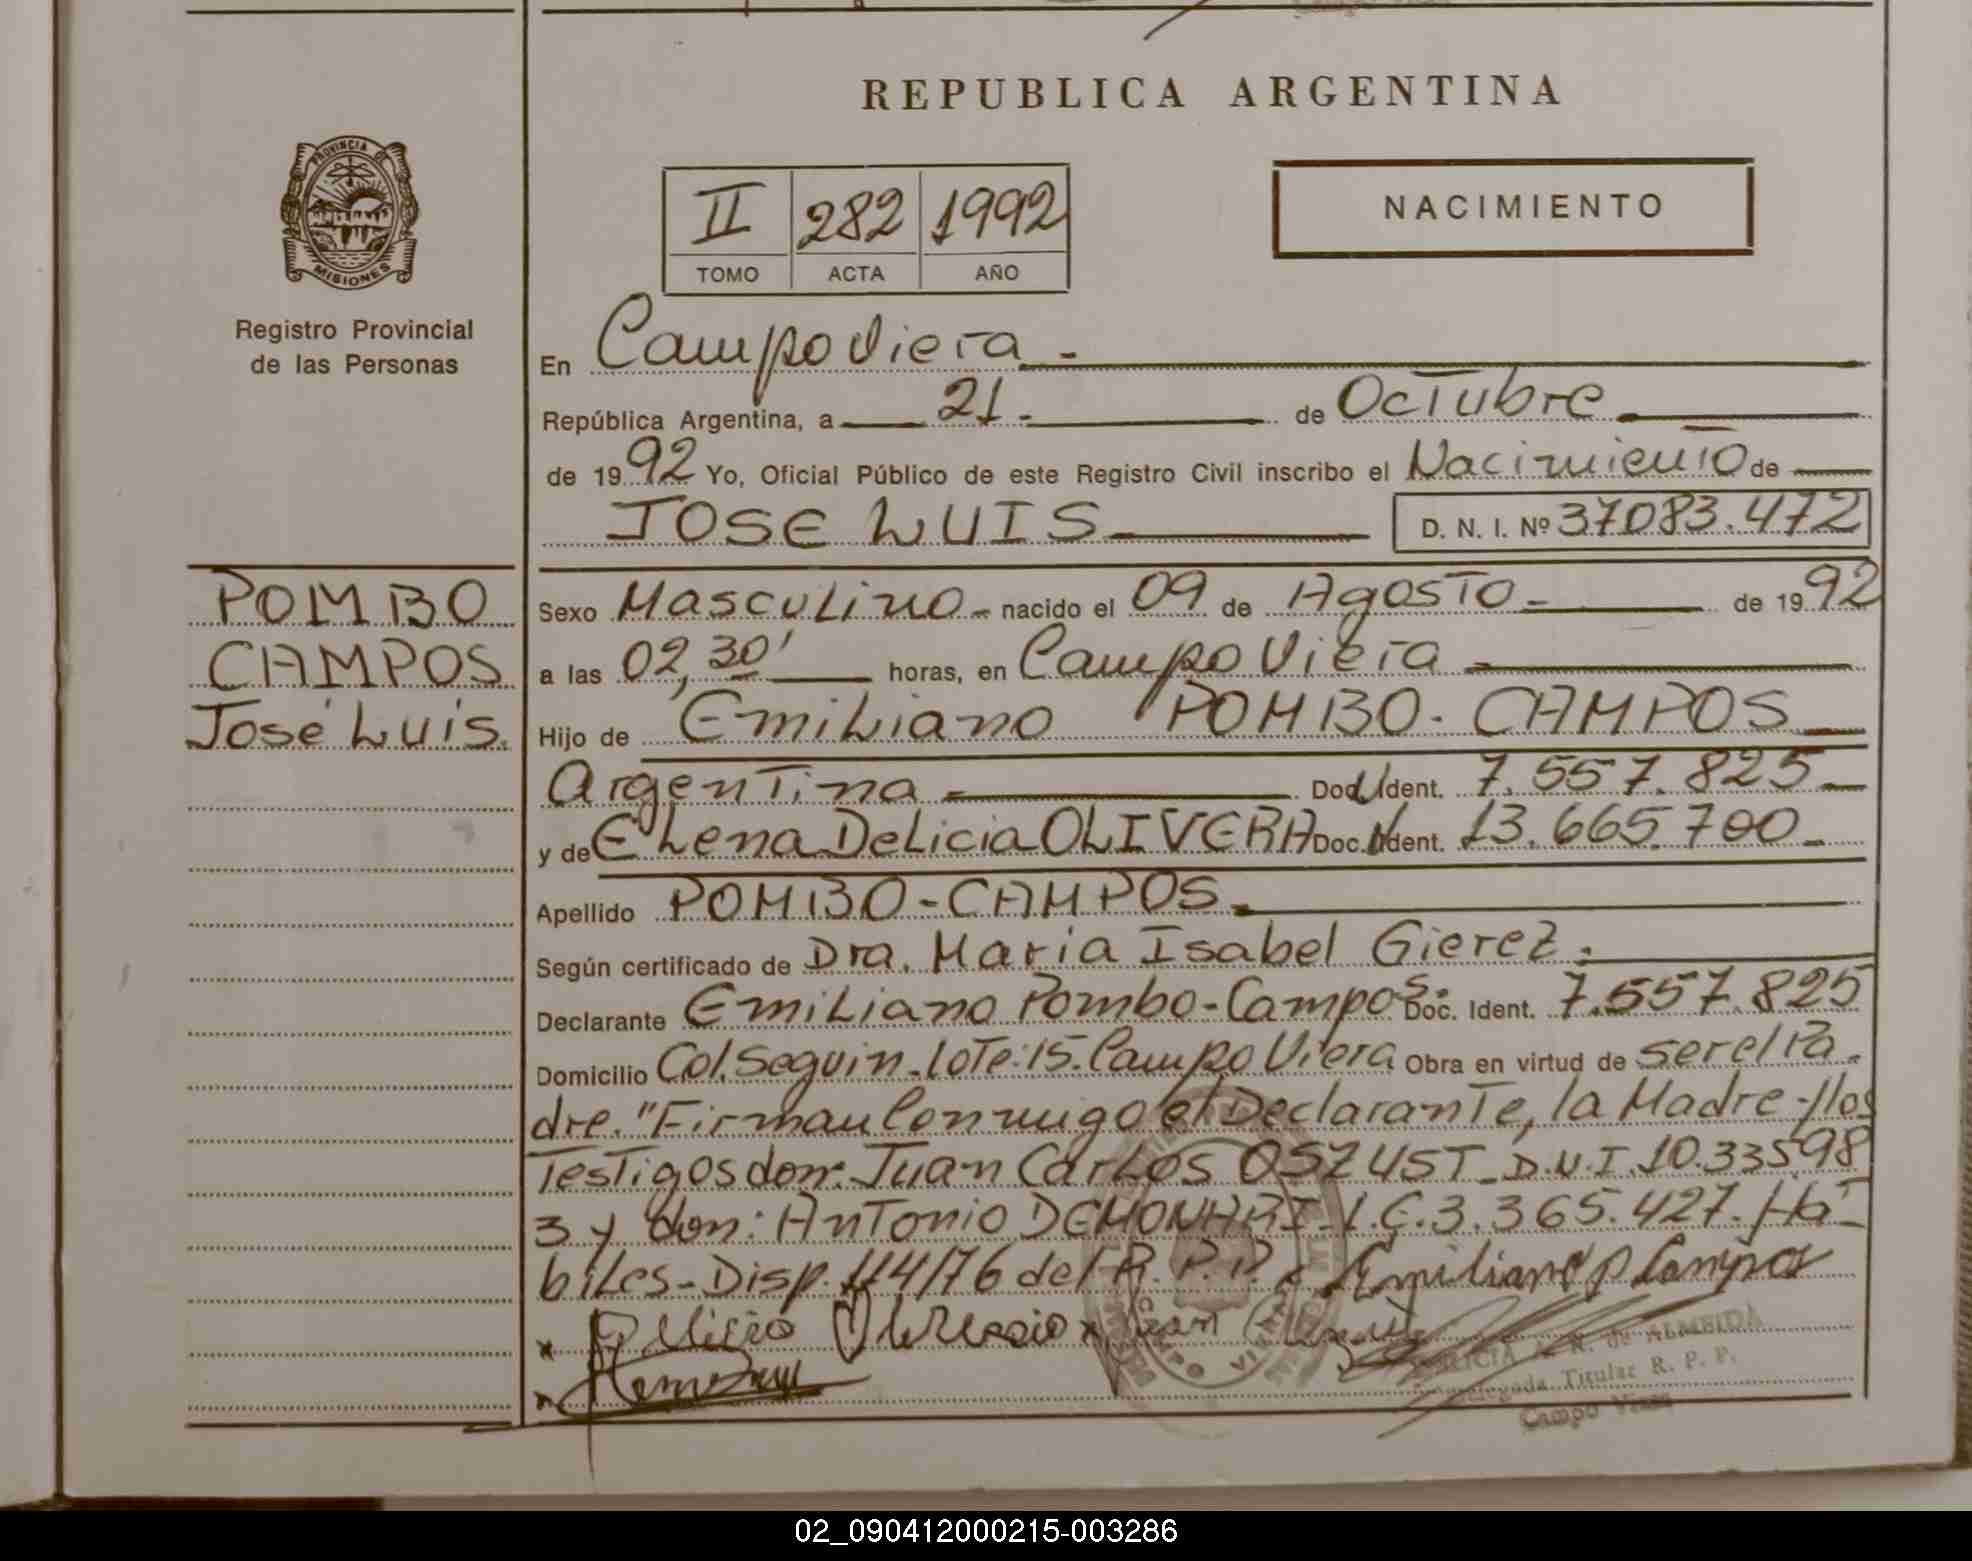 REPUBLICA ARGENTINA
PROVINCIA DE
MISIONES
Registro Provincial
de las Personas
II 282 1992
TOMO ACTA AÑO
NACIMIENTO
En Campo Viera -
República Argentina, a 21- de Octubre
de 1992 Yo, Oficial Público de este Registro Civil inscribo el Nacimiento de
JOSE LUIS D. N. I. Nº 37083.472
POMBO
CAMPOS
José Luis.
Sexo Masculino - nacido el 09 de Agosto - de 1992
a las 02,30' horas, en Campo Viera -
Hijo de Emiliano POMBO - CAMPOS
Argentina - Doc. Ident. 7.557.825-
y de Elena Delicia OLIVERA Doc. Ident. 13.665.700-
Apellido POMBO-CAMPOS-
Según certificado de Dra. Maria Isabel Gierez.
Declarante Emiliano Pombo-Campos. Doc. Ident. 7.557.825
Domicilio Col. Seguin. Lote:15. Campo Viera Obra en virtud de ser el Pa-
dre. "Firman Conmigo el Declarante, la Madre y los
Testigos don: Juan Carlos OSZUST D.N.I. 10.33598
3 y don: Antonio DEMONHARI L.E. 3.365.427. Há-
biles-Disp. 114/76 del R. P. P. Emiliano P Campos
A. R. de ALMEIDA
Delegada Titular R. P. P.
Campo Viera
02_090412000215-003286